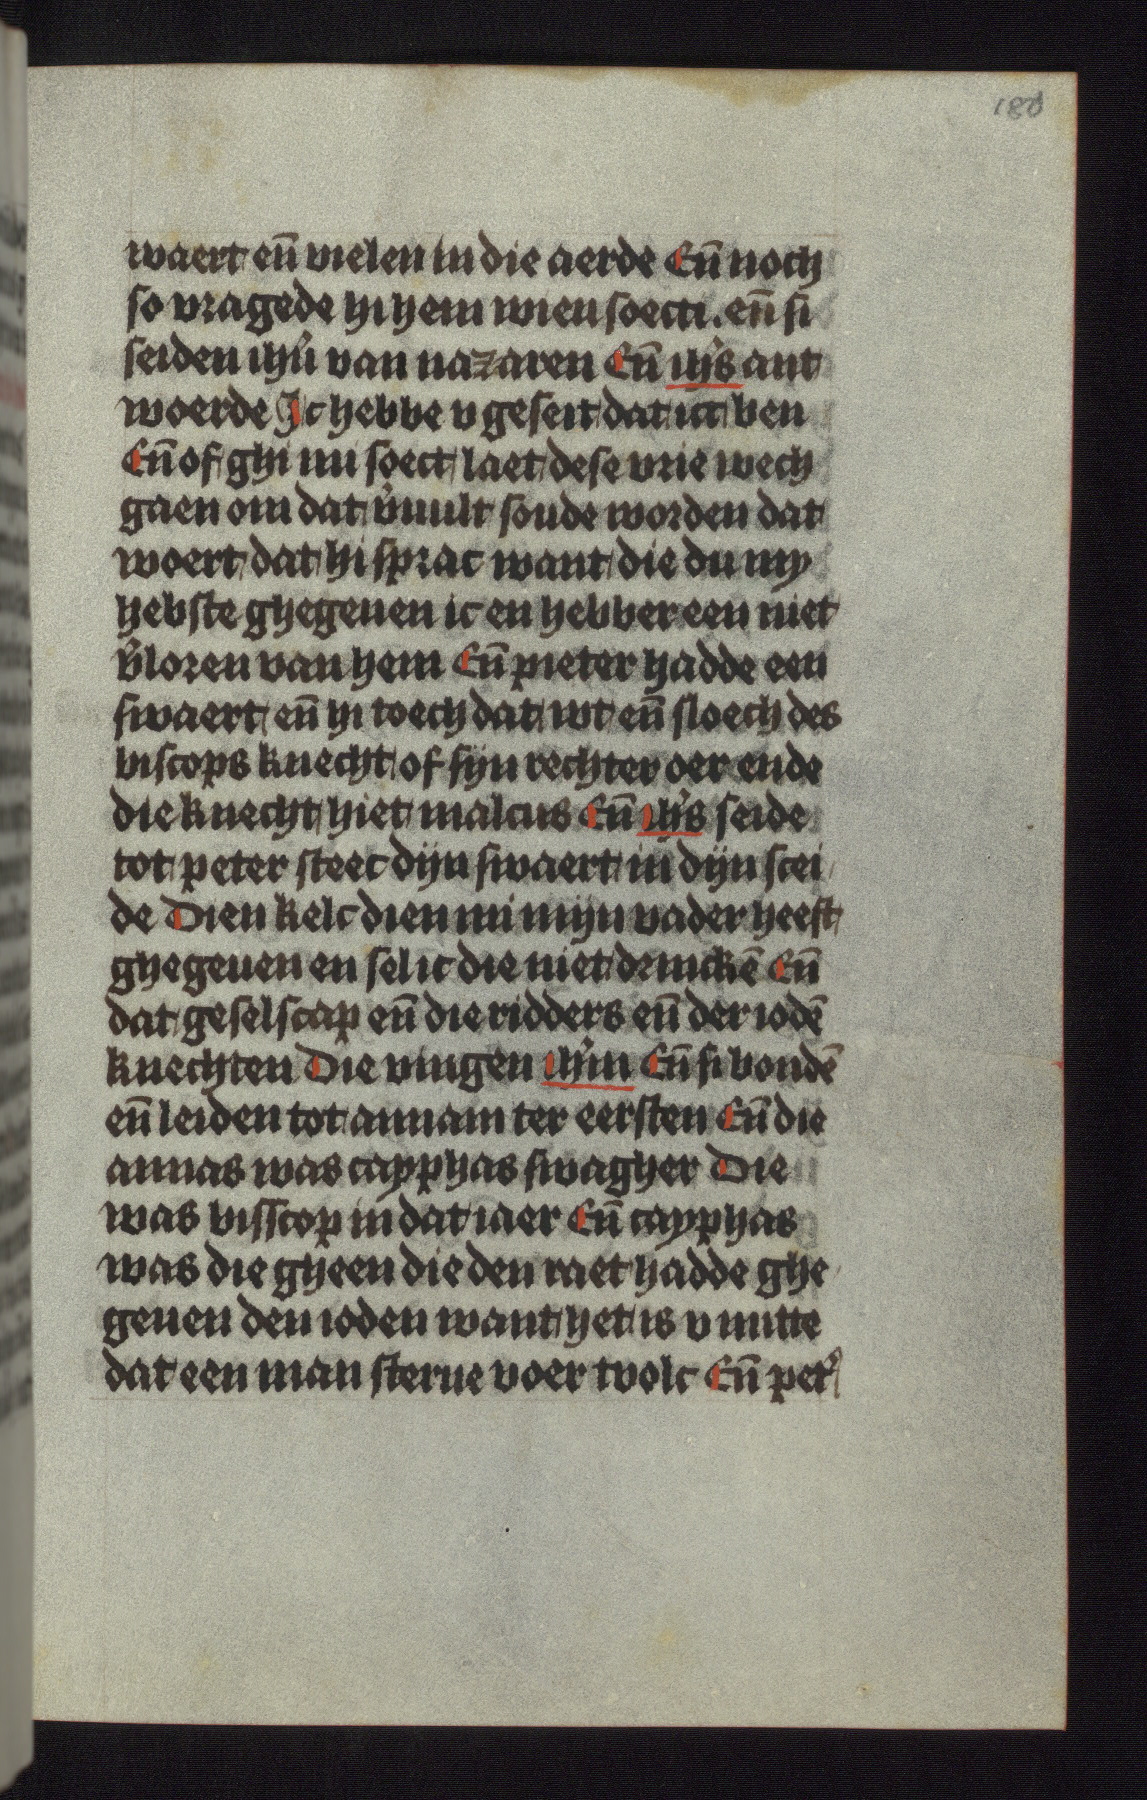 180
waert en̄ vielen in die aerde En̄ noch
so vragede hi hem wien soecti. en̄ si
seiden ihū van nazaren En̄ ihs̄ ant
woerde Ic hebbe v geseit dat ict ben
En̄ of ghi mi soect laet dese vrie wech
gaen om dat v̄uult soude worden dat
woert dat hi sprac want die du my
hebste ghegeuen ic en hebber een niet
v̄loren van hem En̄ pieter hadde een
swaert en̄ hi toech dat wt en̄ sloech des
biscops knecht of sijn rechter oer ende
die knecht hiet malcus En̄ ihs̄ seide
tot peter steec dijn swaert in dijn scei
de Dien kelc dien mi mijn vader heeft
ghegeuen en sel ic die niet drinckē En̄
dat geselscap en̄ die ridders en̄ der iodē
knechten Die vingen ihm̄ En̄ si bondē
en̄ leiden tot annam ter eersten En̄ die
annas was cayphas swagher Die
was bisscop in dat iaer En̄ cayphas
was die gheen die den raet hadde ghe
geuen den ioden want het is v nutte
dat een man sterue voer tvolc En̄ pet᷒